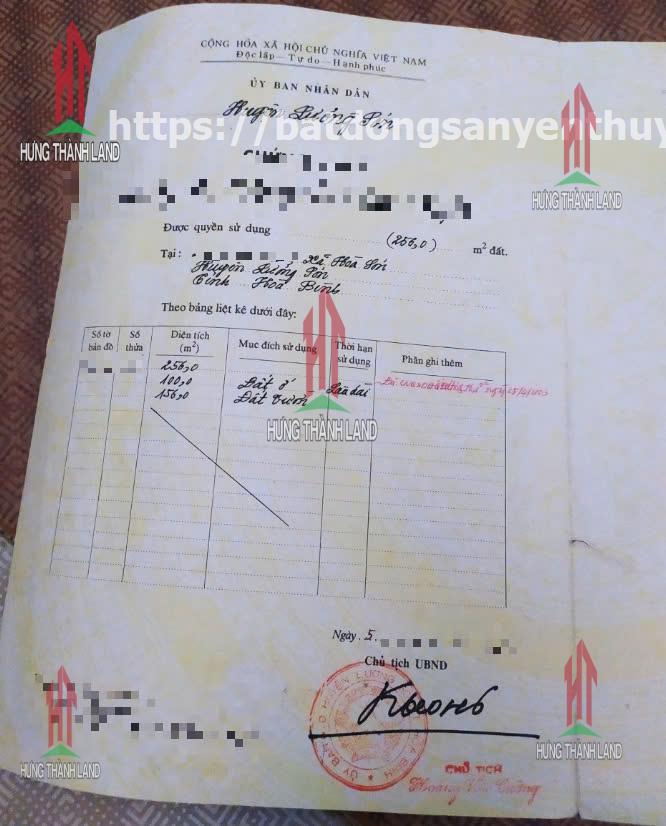 CỘNG HÒA XÃ HỘI CHỦ NGHĨA VIỆT NAM
Độc lập - Tự do - Hạnh phúc
ỦY BAN NHÂN DÂN
Huyện Lương Sơn
https://batdongsanyenthuy
HƯNG THÀNH LAND
HƯNG THÀNH LAND
Được quyền sử dụng (256,0) m² đất.
Tại: Xã Hòa Sơn
Huyện Lương Sơn
Tỉnh Hoà Bình
Theo bảng liệt kê dưới đây:
Số tờ bản đồ Số thửa Diện tích (m²) Mục đích sử dụng Thời hạn sử dụng Phần ghi thêm
256,0
100,0 Đất ở Lâu dài
156,0 Đất vườn
HƯNG THÀNH LAND
Ngày 5
Chủ tịch UBND
HƯNG THÀNH LAND
HƯNG THÀNH LAND
CHỦ TỊCH
Hoàng Văn